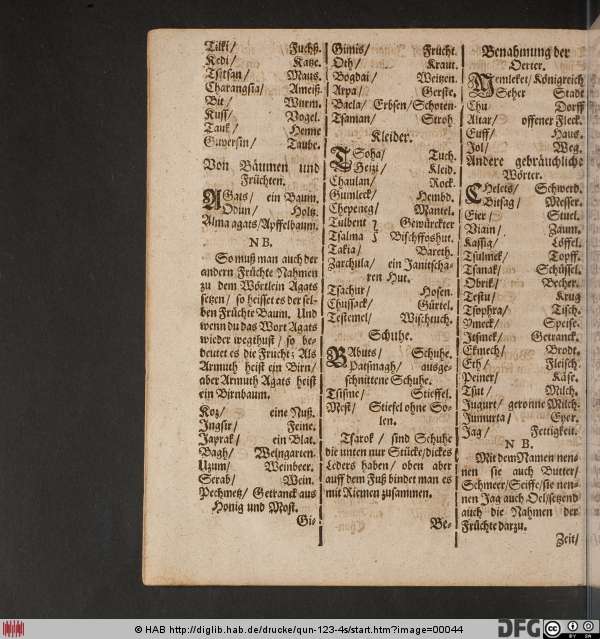 Tilki/ Fuchß.
Kedi/ Katze.
Tsitsan/ Maus.
Charangsia/ Ameiß.
Bit/ Wurm.
Kuss/ Vogel.
Tauk/ Henne
Guversin/ Taube.
Von Bäumen und
Früchten.
AGats/ ein Baum.
Odun/ Holtz.
Alma agats/Apffelbaum.
NB.
So muß man auch der
andern Früchte Nahmen
zu dem Wörtlein Agats
setzen/ so heisset es der sel-
ben Früchte Baum. Und
wenn du das Wort Agats
wieder wegthust/ so be-
deutet es die Frucht; Als
Armuth heist ein Birn/
aber Armuth Agats heist
ein Birnbaum.
Koz/ eine Nuß.
Ingsir/ Feine.
Japrak/ ein Blat.
Bagh/ Weingarten.
Uzum/ Weinbeer.
Serab/ Wein.
Pechmetz/ Getranck aus
Honig und Most.
Gi-
Gimis/ Frücht.
Oth/ Kraut.
Bogdai/ Weitzen.
Arpa/ Gerste.
Bacla/ Erbsen/Schoten.
Tsaman/ Stroh
Kleider.
TSoha/ Tuch.
Heizi/ Kleid.
Chaulan/ Rock.
Gumleck/ Hembd.
Chepeneg/ Mantel.
Tulbent } Gewürckter
Tsalma } Bischffoshut.
Takia/ Bareth.
Zarchula/ ein Janitscha-
ren Hut.
Tsachur/ Hosen.
Chussack/ Gürtel.
Testemel/ Wischtuch.
Schuhe.
BAbuts/ Schuhe.
Patsmagh/ ausge-
schnittene Schuhe.
Tsisme/ Stieffel.
Mest/ Stiefel ohne So-
len.
Tsarok/ sind Schuhe
die unten nur Stücke/dickes
Leders haben/ oben aber
auff dem Fuß bindet man es
mit Riemen zusammen.
Be-
Benahmung der
Oerter.
Memleket/Königreich
Seher Stadt
Chu Dorff
Altar/ offener Fleck.
Euff/ Haus.
Jol/ Weg.
Andere gebräuchliche
Wörter.
CHeleis/ Schwerd.
Bitsag/ Messer.
Eier/ Stuel.
Vian/ Zaum.
Kassig/ Löffel.
Tsulmek/ Topff.
Tsanak/ Schüssel.
Obrik/ Becher.
Testu/ Krug
Tsophra/ Tisch.
Ymeck/ Speise.
Itsmek/ Getranck.
Ekmech/ Brodt.
Eth/ Fleisch.
Peiner/ Käse.
Tsut/ Milch.
Jugurt/ geronne Milch.
Jumurta/ Eyer.
Jag/ Fettigkeit.
NB.
Mit dem Namen nen-
nen sie auch Butter/
Schmeer/Seiffe/sie nen-
nen Jag auch Oel/setzend
auch die Nahmen der
Früchte darzu.
Zeit/
© HAB http://diglib.hab.de/drucke/qun-123-4s/start.htm?image=00044
DFG
CC BY SA